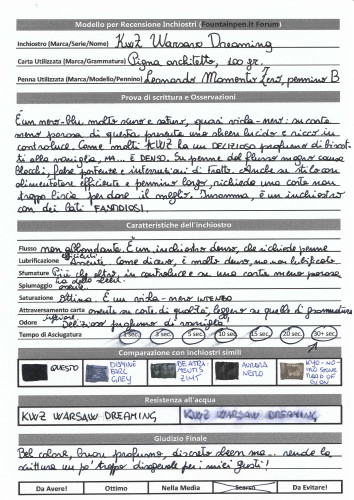 Modello per Recensione Inchiostri (Fountainpen.it Forum)
Inchiostro (Marca/Serie/Nome) KWZ Warsaw Dreaming
Carta Utilizzata (Marca/Grammatura) Pigna architetto, 100 gr.
Penna Utilizzata (Marca/Modello/Pennino) Leonardo Momento Zero, pennino B
Prova di scrittura e Osservazioni
È un nero-blu molto scuro e saturo, quasi viola-nero: su carta
meno porosa di questa presenta uno sheen lucido e ricco in
controluce. Come molti KWZ ha un DELIZIOSO profumo di biscot-
ti alla vaniglia, MA... È DENSO. Su penne dal flusso magro causa
blocchi, false partenze e interruzioni di tratto. Anche su stilo con
alimentatore efficiente e pennino largo, richiede una carta non
troppo liscia per dare il meglio. Insomma, è un inchiostro
con dei lati FASTIDIOSI.
Caratteristiche dell'inchiostro
Flusso non abbondante. È un inchiostro denso, che richiede penne
efficienti.
Lubrificazione Assente. Come dicevo, è molto denso, ma non lubrificato
Sfumature Più che altro, in controluce e su una carta meno porosa
Spiumaggio assente.
Saturazione Ottima. È un viola-nero INTENSO
Attraversamento carta assente su carte di qualità, leggero su quelle di grammatura
inferiore.
Odore Delizioso profumo di vaniglia.
Tempo di Asciugatura 1 sec. 3 sec. 5 sec. 10 sec. 15 sec. 20 sec. 30+ sec.
Comparazione con Inchiostri similari
QUESTO
DIAMINE EARL GREY
DE ATRAMENTIS
AURORA NERO
Resistenza all'acqua
KWZ WARSAW DREAMING
KWZ WARSAW DREAMING
Giudizio Finale
Bel colore, buon profumo, discreto sheen ma... rende la
scrittura un po' troppo disagevole per i miei gusti!
Da Avere!
Ottimo
Nella Media
Scarso
Da Evitare!